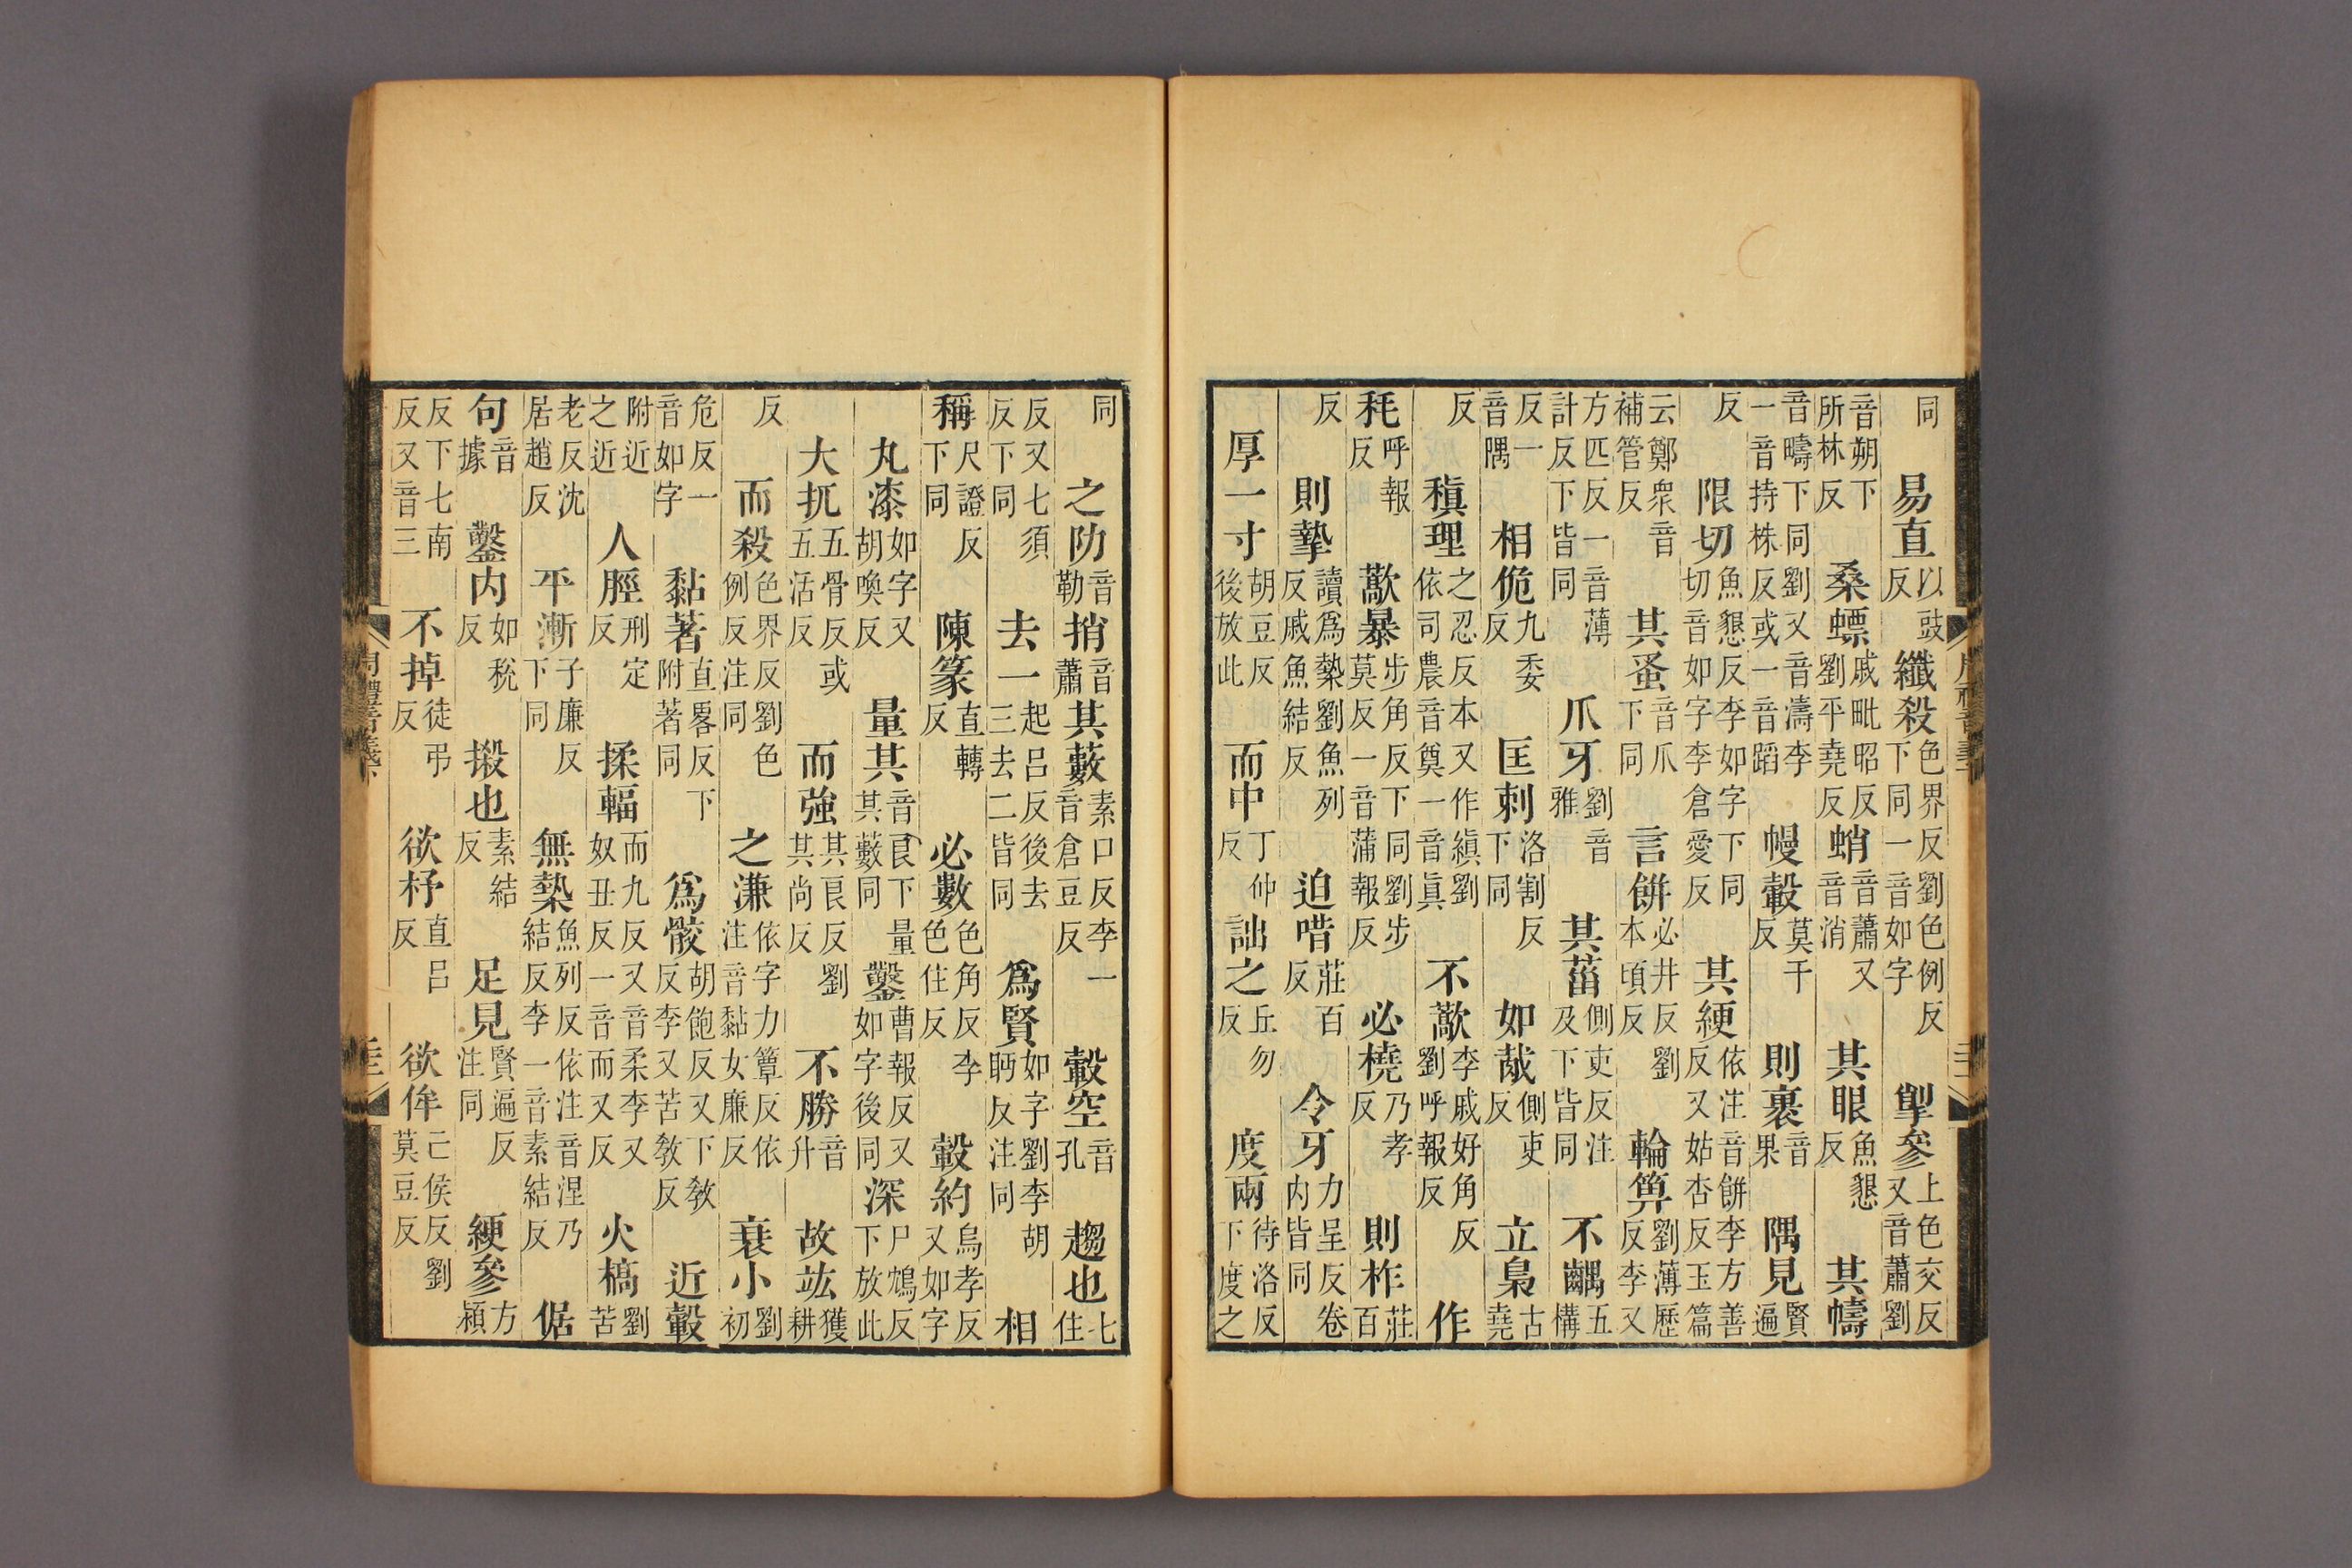 同 易直 以豉反 纖殺 色界反劉色例反下同一音如字 揱參 上色交反又音蕭劉
音朔下所林反 桑螵 戚毗昭反劉平堯反 蛸 音蕭又音消 其眼 魚懇反 其幬
音疇下同劉又音濤李一音持株反或一音蹈 幔轂 莫干反 則裹 音果 隅見 賢遍
反 限切 魚懇反李如字下同切音如字李倉愛反 其綆 依注音餅李方善反又姑杏反玉篇
云鄭衆音補管反 其蚤 音爪下同 言餅 必井反劉本頃反 輪箄 劉薄歷反李又
方匹反一音薄計反下皆同 爪牙 劉音雅 其菑 側吏反注及下皆同 不齵 五構
反一音隅 相佹 九委反 匡刺 洛割反下同 如胾 側吏反 立梟 古堯
反 稹理 之忍反本又作縝劉依司農音奠一音眞 不藃 李戚好角反劉呼報反 作
秏 呼報反 藃暴 步角反下同劉步莫反一音蒲報反 必橈 乃孝反 則柞 莊百
反 則摯 讀爲槷劉魚列反戚魚結反 迫唶 莊百反 令牙 力呈反卷内皆同
厚一寸 胡豆反後放此 而中 丁仲反 詘之 丘勿反 度兩 待洛反下度之
同 之阞 音勒 捎 音蕭 其藪 素口反李一音倉豆反 轂空 音孔 趨也 七住
反又七須反下同 去一 起呂反後去三去二皆同 爲賢 如字劉李胡眄反注同 相
稱 尺證反下同 陳篆 直轉反 必數 色角反李色住反 轂約 烏孝反又如字
丸漆 如字又胡喚反 量其 音良下量其藪同 鑿 曹報反又如字後同 深 尸鴆反下放此
大扤 五骨反或五活反 而強 其良反劉其尚反 不勝 音升 故竑 獲耕
反 而殺 色界反劉色例反注同 之溓 依字力簟反依注音黏女廉反 衰小 劉初
危反一音如字 黏著 直畧反下附著同 爲骹 胡飽反又下敎反李又苦敎反 近轂
附近之近 人脛 刑定反 揉輻 而九反又音柔李又奴丑反一音而又反 火槁 劉苦
老反沈居趙反 平漸 子廉反下同 無槷 魚列反依注音涅乃結反李一音素結反 倨
句 音據 鑿内 如稅反 摋也 素結反 足見 賢遍反注同 綆參 方穎
反下七南反又音三 不掉 徒弔反 欲杼 直呂反 欲侔 亡侯反劉莫豆反